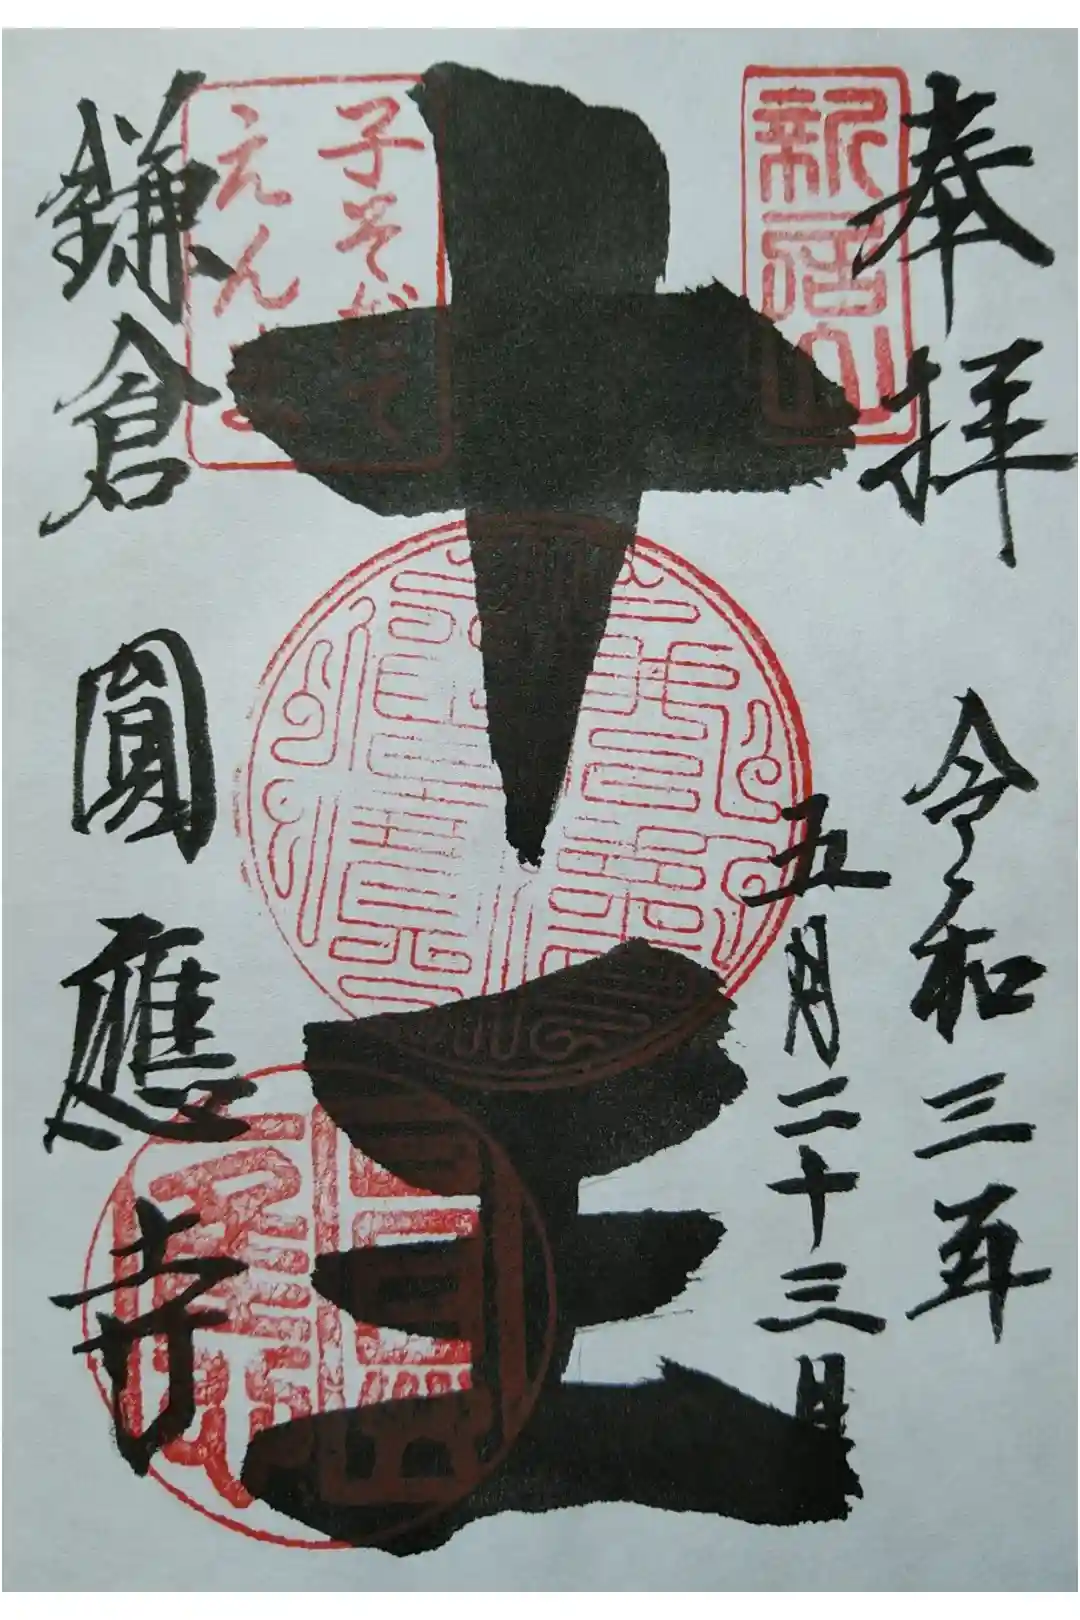 奉拝
令和三年
五月二十三日
新居山
十王
子そだて
えんま
鎌倉圓應寺